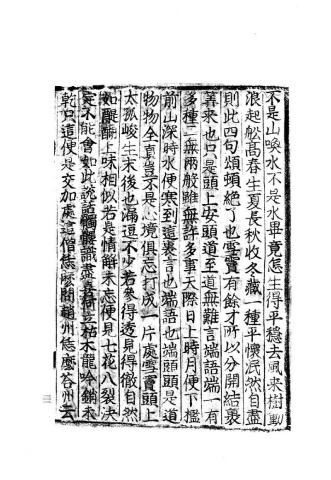 不是山喚水不是水畢竟怎生得平穩去風来樹動
浪起舩髙春生夏長秋收冬藏一種平懷泯然自盡
則此四句頌頓絶了也雪竇有餘才所以分開結裹
筭来也只是頭上安頭道至道無難言端語端一有
多種二無兩般雖無許多事天際日上時月便下檻
前山深時水便寒到這裏言也端語也端頭頭是道
物物全真豈不是心境俱忘打成一片處雪竇頭上
太孤峻生末後也漏逗不少若參得透見得徹自然
如醍醐上味相似若是情解未忘便見七花八裂決
定不能會如此說話髑髏識盡喜何立枯木龍吟銷未
乾只這便是交加處這僧恁麽問趙州恁麽答州云